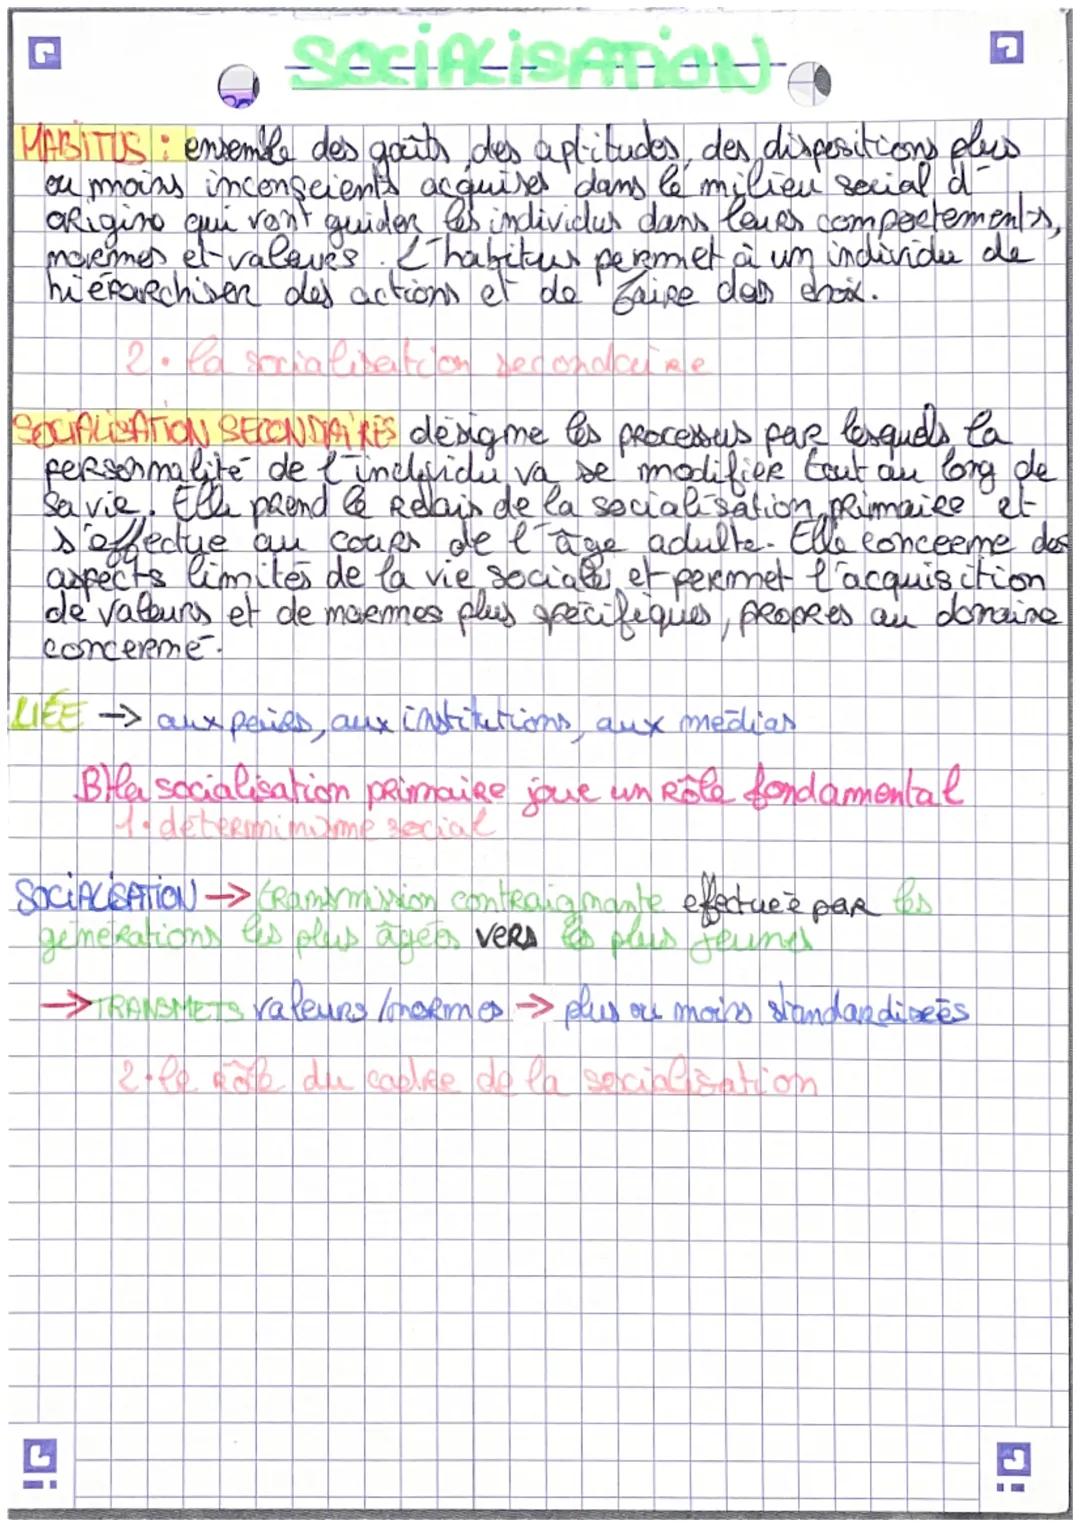 SOCIALISATION
HABITUS : ensemble des goûts, des aptitudes, des dispositions plus
ou moins inconscients acquises dans le milieu social d'
origine qui vont guider les individus dans leurs comportements,
normes et valeurs. L'habitus permet à un individu de
hiérarchiser des actions et de faire des choix.
2. la socialisation secondaire
SOCIALISATION SECONDAIRES désigne les processus par lesquels la
personnalité de l'individu va se modifier tout au long de
sa vie. Elle prend le relais de la socialisation primaire et
s'effectue au cours de l'âge adulte. Elle concerne des
aspects limités de la vie sociale et permet l'acquisition
de valeurs et de normes plus spécifiques, propres au domaine
concerné.
LIÉE → aux paires, aux institutions, aux médias
B) la socialisation primaire joue un rôle fondamental
1. déterminisme social
SOCIALISATION → transmission contraignante efectueé par les
générations les plus âgées vers les plus jeunes
→ TRANSMETS valeurs / normes → plus ou moins standardisées
2. le rôle du cadre de la socialisation